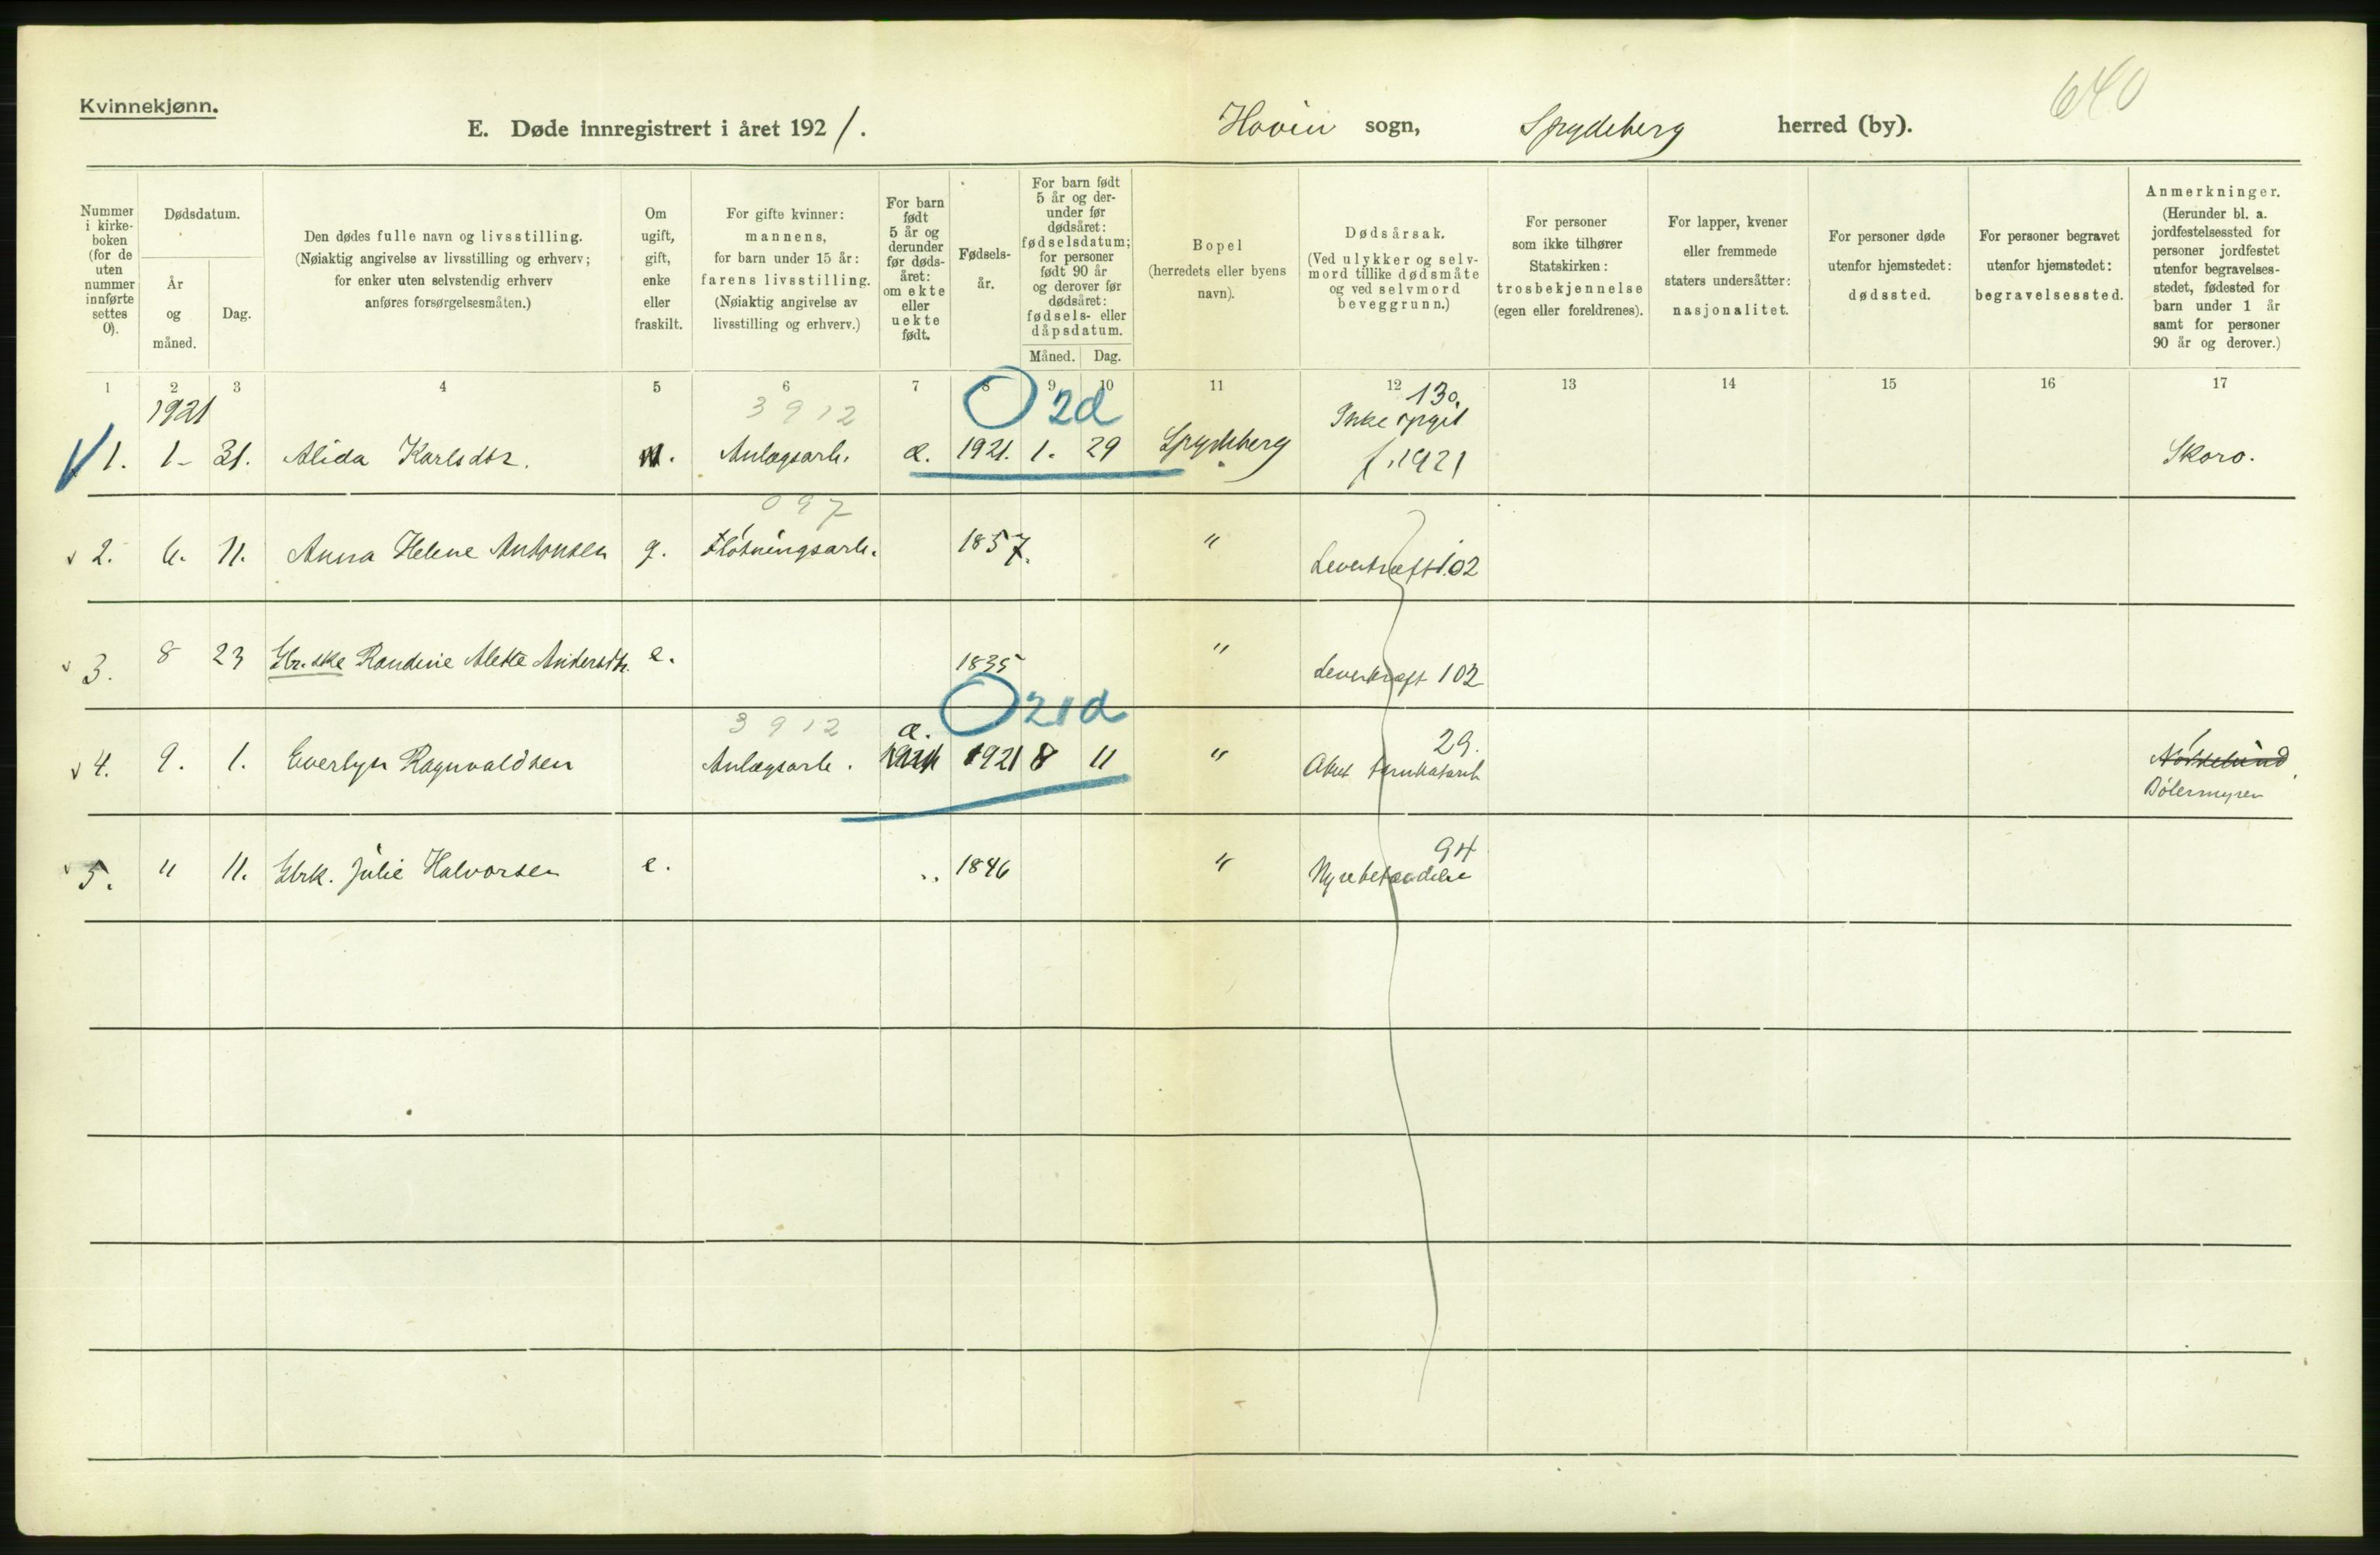 640
Kvinnekjønn.
E. Døde innregistrert i året 1921. Hovin sogn, Spydeberg herred (by).
Nummer i kirke-boken (for de uten nummer innførte settes 0).
Dødsdatum.
År og måned.
Dag.
Den dødes fulle navn og livsstilling.
(Nøiaktig angivelse av livsstilling og erhverv;
for enker uten selvstendig erhverv
anføres forsørgelsesmåten.)
Om
ugift,
gift,
enke
eller
fraskilt.
For gifte kvinner:
mannens,
for barn under 15 år:
farens livsstilling.
(Nøiaktig angivelse av
livsstilling og erhverv.)
For barn
født
5 år og
derunder
før døds-
året:
om ekte
eller
uekte
født.
Fødsels-
år.
For barn født
5 år og der-
under før
dødsåret:
fødselsdatum;
for personer
født 90 år
og derover før
dødsåret:
fødsels- eller
dåpsdatum.
Måned. Dag.
Bopel
(herredets eller byens
navn).
Dødsårsak.
(Ved ulykker og selv-
mord tillike dødsmåte
og ved selvmord
beveggrunn.)
For personer
som ikke tilhører
Statskirken:
trosbekjennelse
(egen eller foreldrenes).
For lapper, kvener
eller fremmede
staters undersåtter:
nasjonalitet.
For personer døde
utenfor hjemstedet:
dødssted.
For personer begravet
utenfor hjemstedet:
begravelsessted.
Anmerkninger.
(Herunder bl. a.
jordfestelsessted for
personer jordfestet
utenfor begravelses-
stedet, fødested for
barn under 1 år
samt for personer
90 år og derover.)
1 2 3 4 5 6 7 8 9 10 11 12 13 14 15 16 17
1921 3912 2d 130.
Ikke opgit
1. 1- 31. Alida Karlsdtr. Anlægsarb. æ. 1921. 1. 29 Spydeberg f. 1921 Skoro.
097
2. 6. 11. Anna Helene Antonsen g. Fløtningsarb. 1857. " Leverkræft 102
3. 8 23 Gbr.ske Randine Alette Andersdtr. e. 1835 " Leverkræft 102
3912 æ. 21d 29.
4. 9. 1. Everlyn Ragnvaldsen Anlægsarb. 1921 8 11 " Akut tarmkatarrh
Bølermyren
94
5. " 11. Gbrk. Julie Halvorsen e. 1846 " Nyrebetændelse